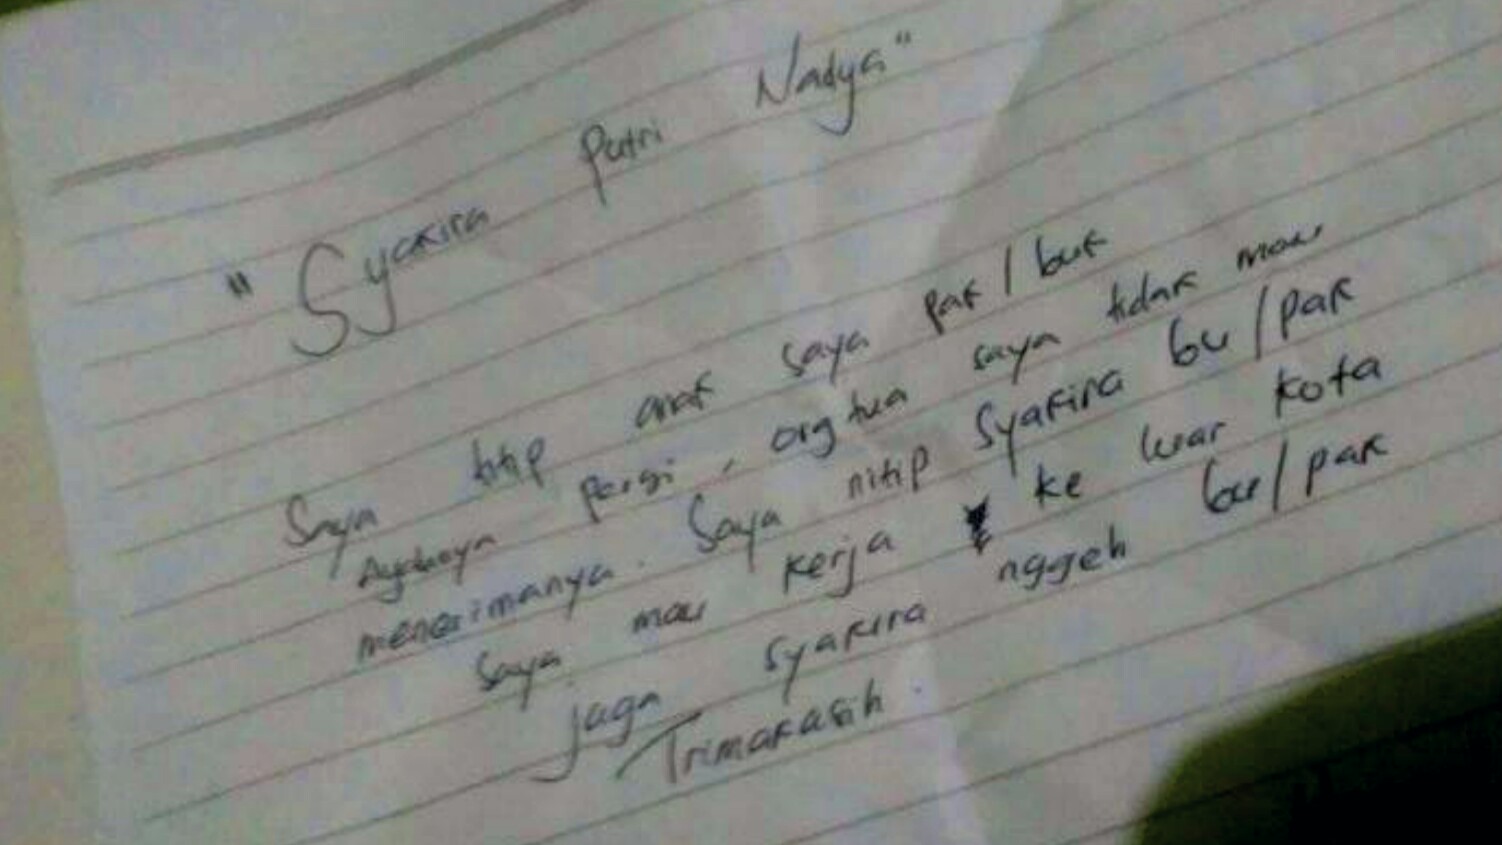 "Syakira Putri Nadya"
Saya titip anak saya pak / buk
Ayahnya pergi, orgtua saya tidak mau
menerimanya. Saya nitip Syakira bu/pak
Saya mau kerja ke luar kota
jaga Syakira nggeh bu/pak
Trimakasih.